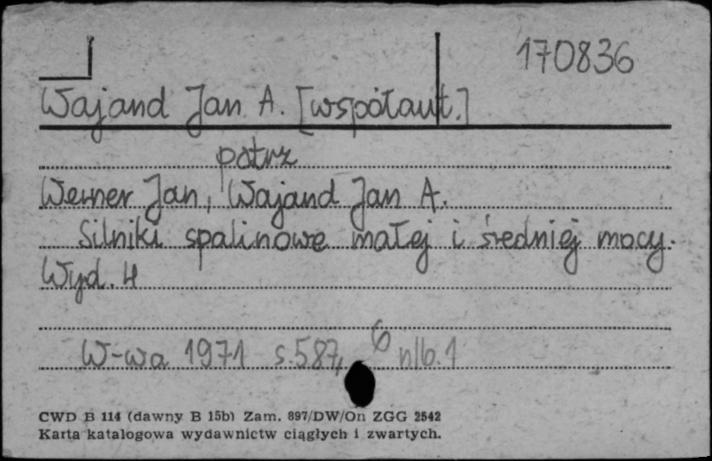 170836
Wajand Jan A. [współaut.]
patrz
Werner Jan, Wajand Jan A.
Silniki spalinowe małej i średniej mocy.
Wyd. 4
W-wa 1971 s. 587, nlb. 1
CWD B 114 (dawny B 15b) Zam. 897/DW/On ZGG 2542
Karta katalogowa wydawnictw ciągłych i zwartych.